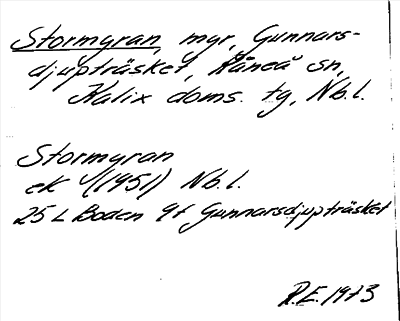 Stormyran, myr, Gunnars-
djupträsket, Råneå sn,
Kalix doms. tg, Nb.l.
Stormyran
ek (1951) Nb.l.
25 L Boden 9f Gunnarsdjupträsket
R.E. 1973